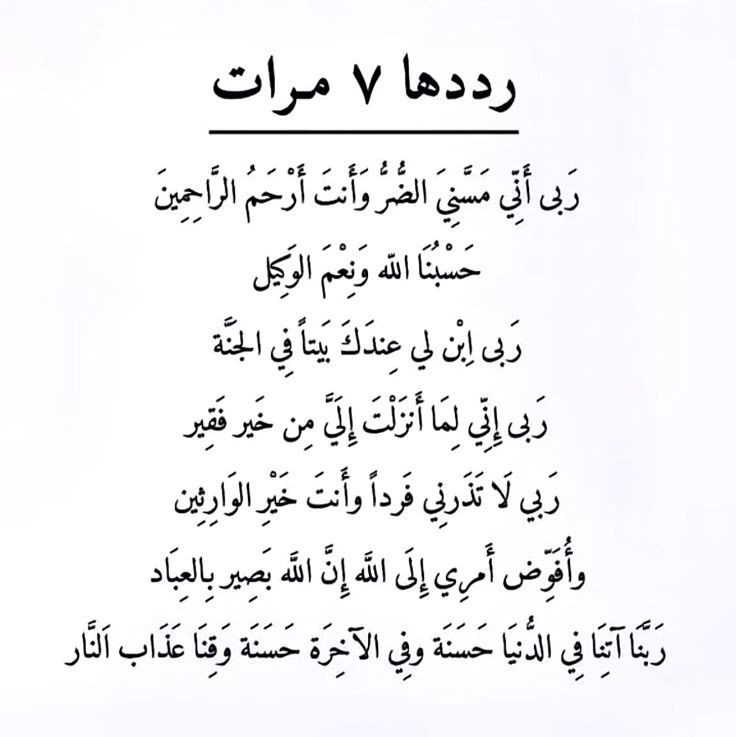 رددها ٧ مرات
رَبى أَنِّي مَسَّنِيَ الضُّرُّ وَأَنتَ أَرْحَمُ الرَّاحِمِينَ
حَسْبُنَا اللّه وَنِعْمَ الوَكِيل
رَبى اِبْن لي عِندَكَ بَيتاً فِي الجَنَّة
رَبى إِنِّي لِمَا أَنزَلْتَ إِلَيَّ مِن خَير فَقِير
رَبي لَا تَذَرنِي فَرداً وأَنتَ خَيْرِ الوَارِثِين
وأُفَوِّض أَمرِي إِلَى اللَّه إِنَّ اللَّه بَصِير بِالعِبَاد
رَبَّنَا آتِنَا فِي الدُّنيَا حَسَنَة وفِي الآخِرَة حَسَنَة وَقِنَا عَذَاب اَلنَّار